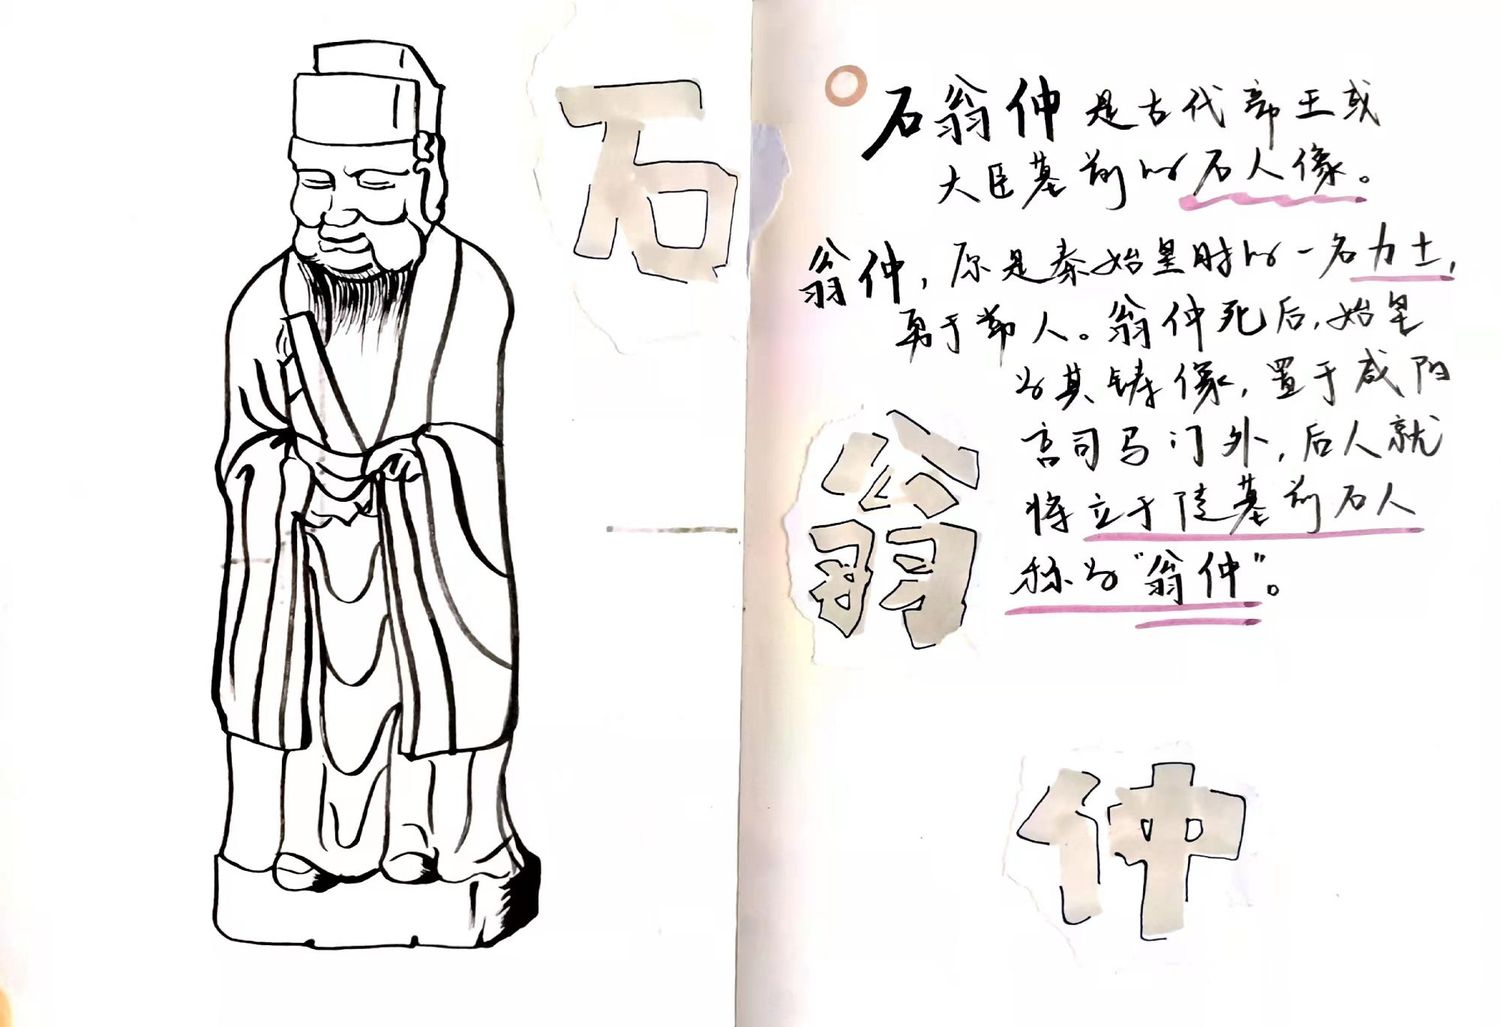 石
翁
仲
石翁仲是古代帝王或
大臣墓前的石人像。
翁仲，原是秦始皇时的一名力士，
勇于鄣人。翁仲死后，始皇
为其铸像，置于咸阳
宫司马门外，后人就
将立于陵墓前石人
称为“翁仲”。